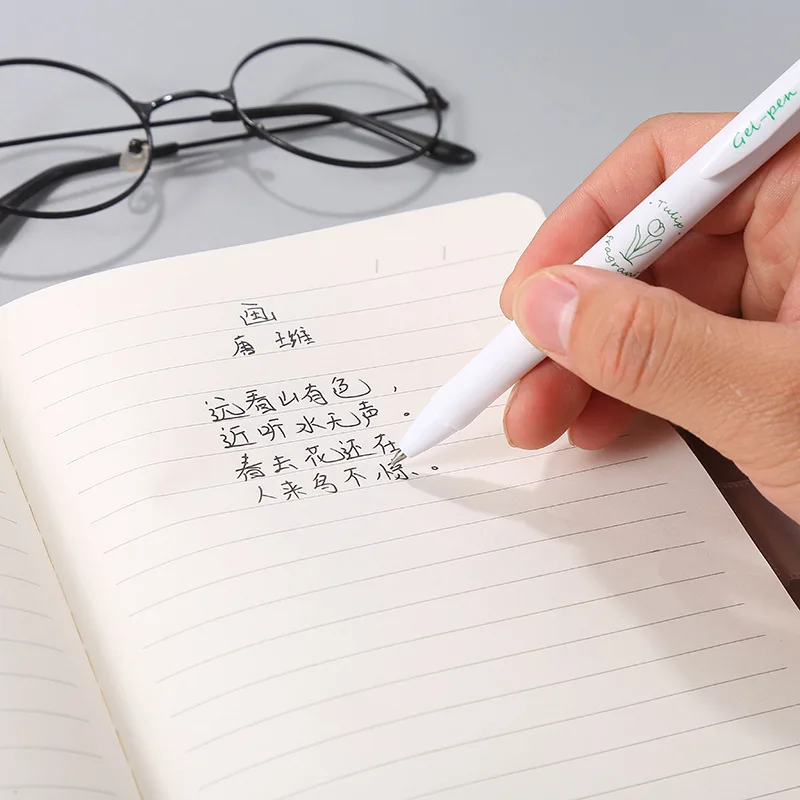 画
唐 王维
远看山有色，
近听水无声。
春去花还在
人来鸟不惊。
Gel-pen
·Tulip·
Fragran